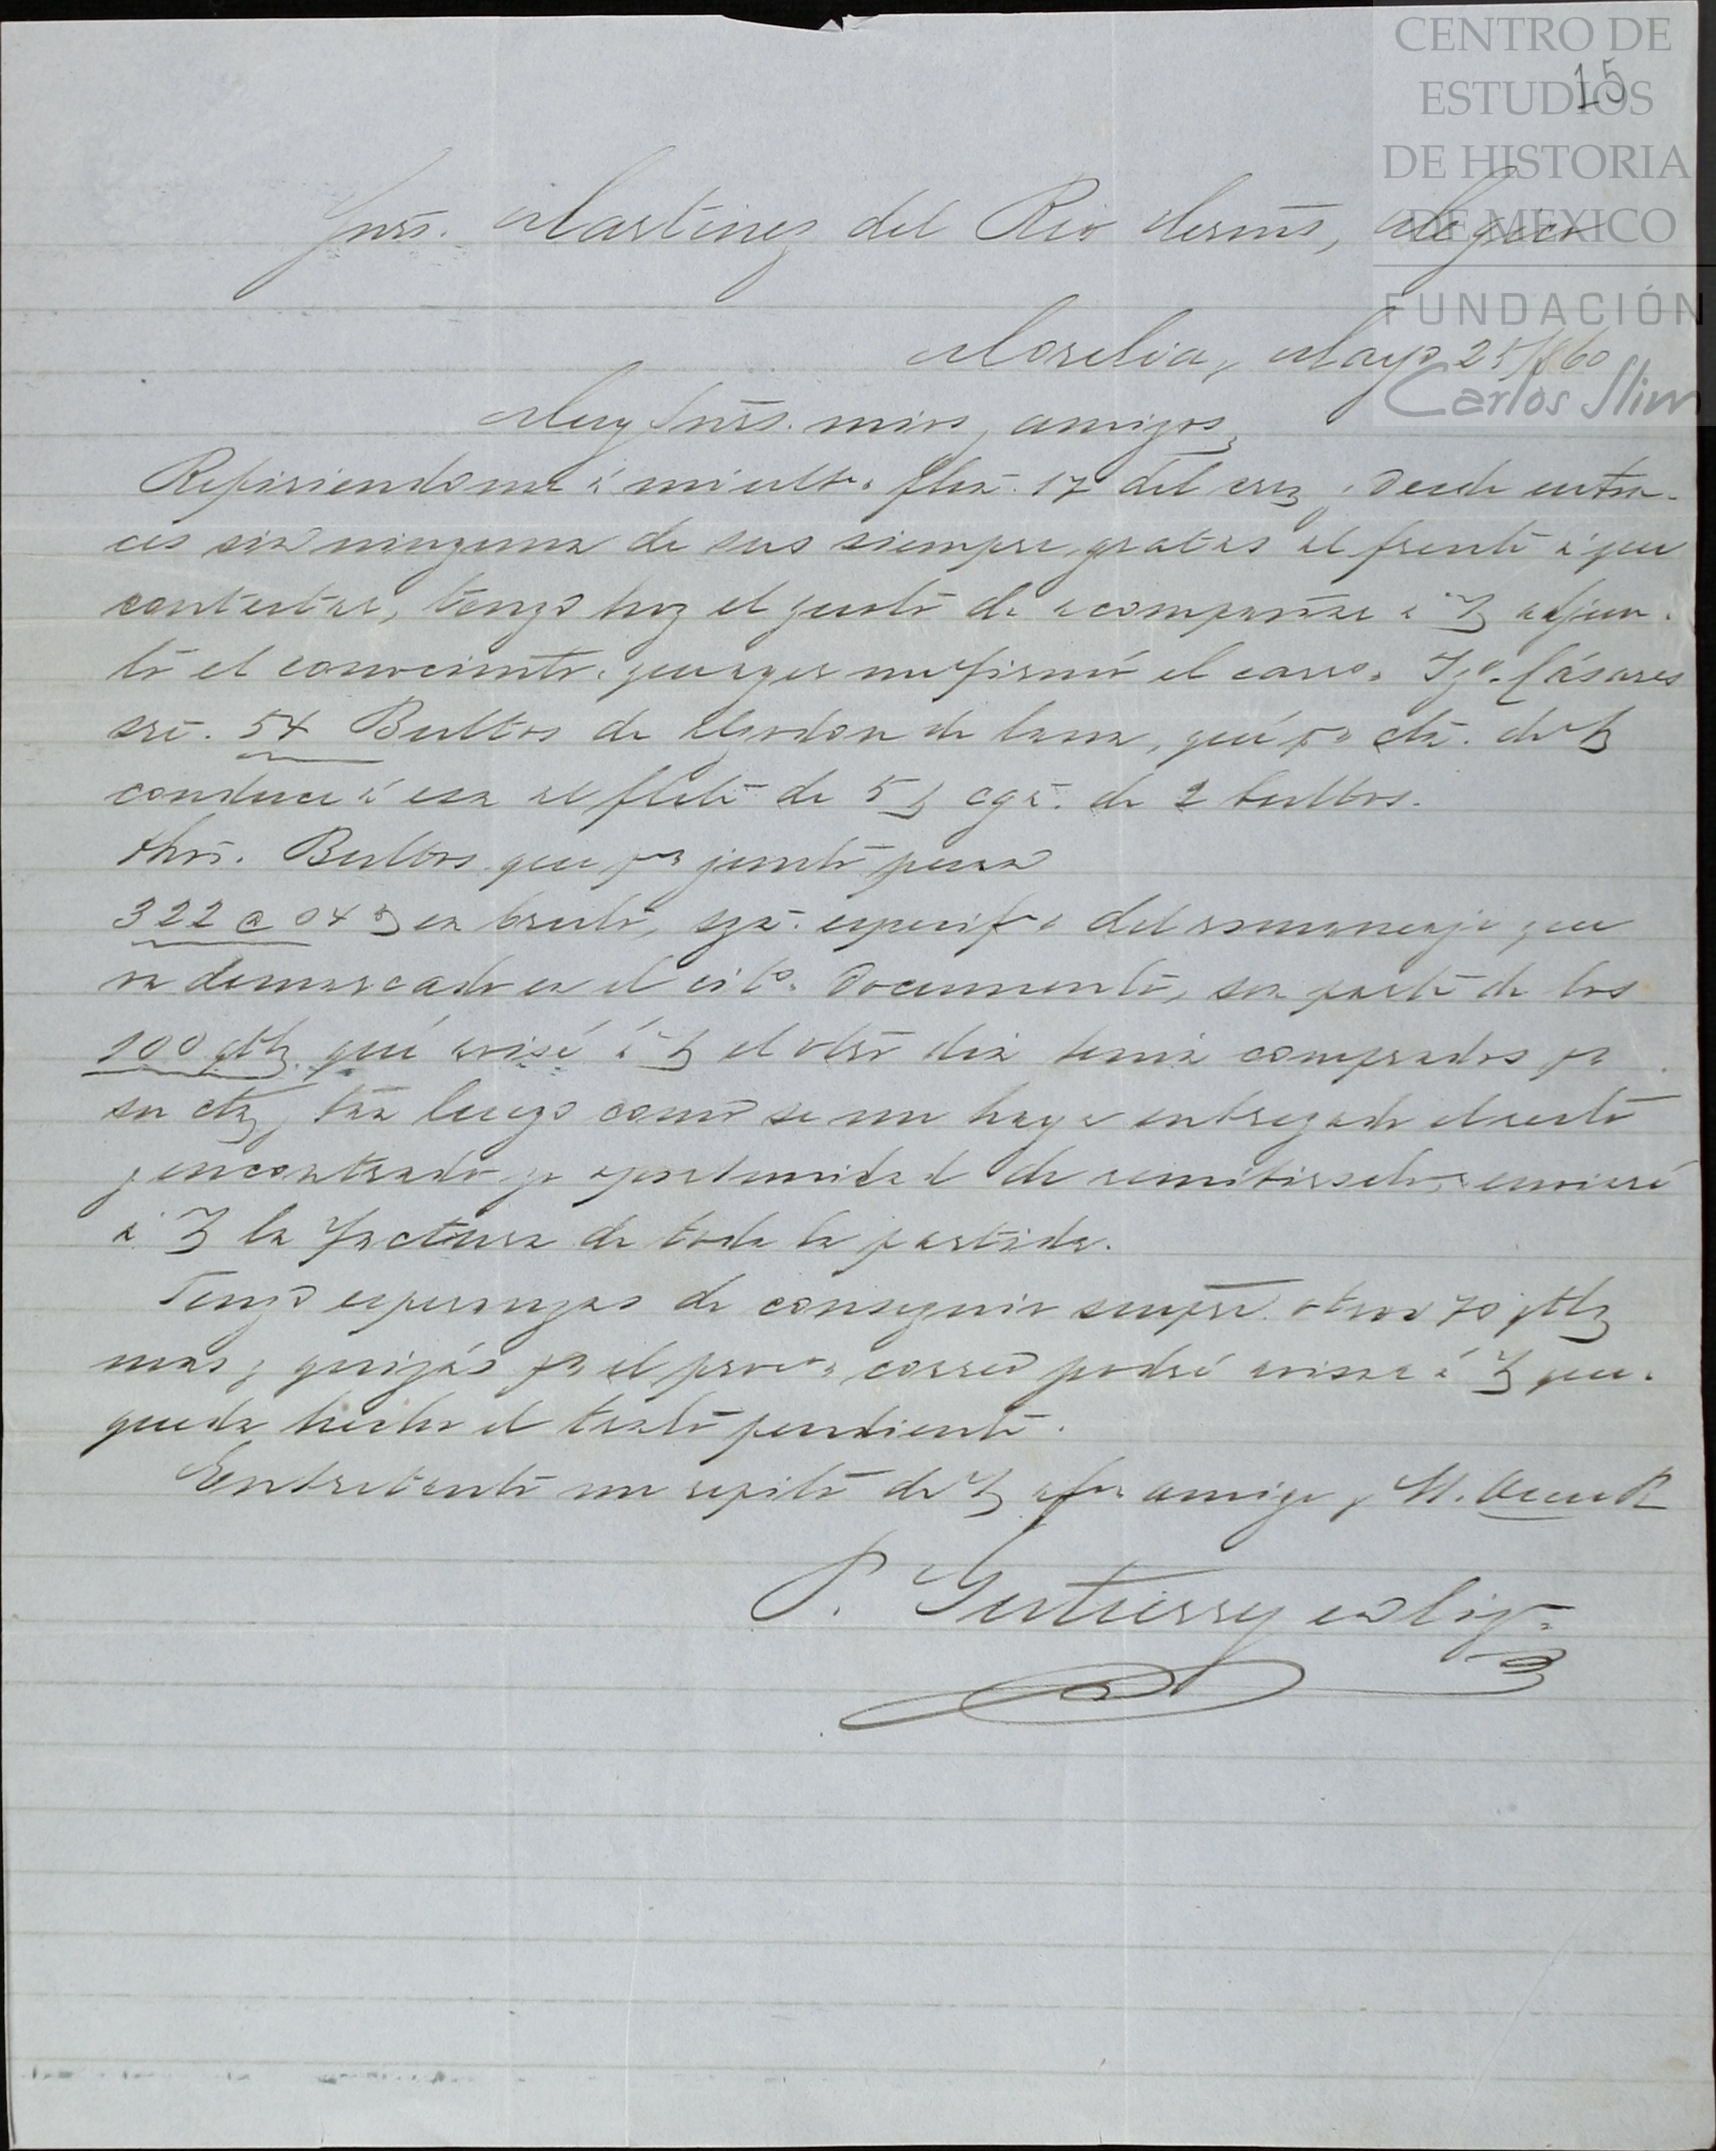 CENTRO DE
ESTUDIOS
DE HISTORIA
DE MEXICO
FUNDACIÓN
Carlos Slim
15
Snrs. Martinez del Rio Herms, Mejico
Morelia, Mayo 25/860
Muy Snrs. mios y amigos
Refiriendome á mi ulto. fha. 17 del crrz y desde enton-
ces sin ninguna de sus siempre gratas al frente á que
contestar, tengo hoy el gusto de acompañar á adjun-
to el conocimto. que ayer me firmó el carro. Igo. Cásares
sre. 54 Bultos de algodon de lana, qué pr cta. de
conduce á esa al flete de 5 cga. de 2 bultos.
dhos. Bultos que pr junto pesan
322 @ 04 en bruto, sga. especif del romaneaje que
va demarcado en el cito. documento, son parte de los
200 qtls que avisé á el otro dia tenia comprados pr
su cta, tan luego como se me haya entregado el resto
y encontrado yo oportunidad de remitirselo, enviaré
á la factura de toda la partida.
Tengo esperanzas de conseguir sempre. otros 70 qtls
mas, y quizás pr el prox correo podré avisar á que
queda hecho el trato pendiente.
Entretanto me repito de afmo amigo y
P. Gutierrez